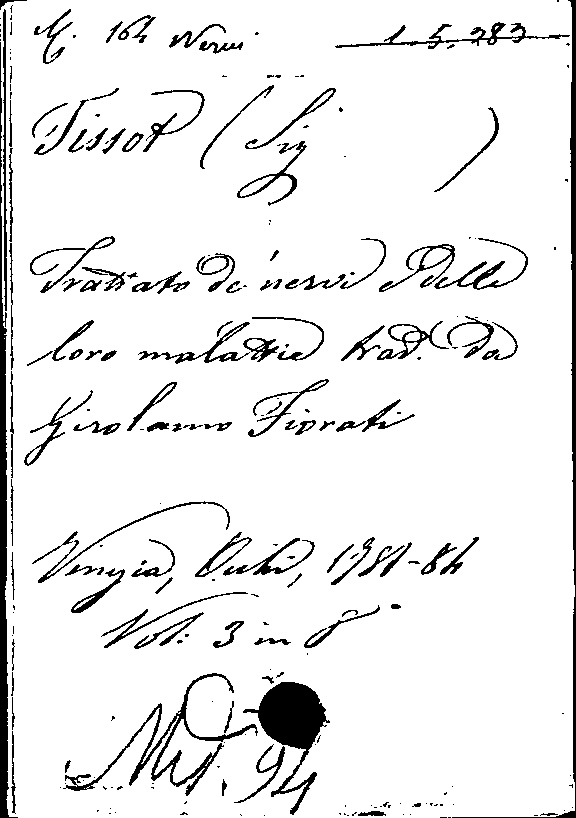 M. 164 Nervi 1. 5. 283
Tissot (Sig )
Trattato de' nervi e delle
loro malattie trad. da
Girolamo Fiorati
Venezia, Occhi, 1781-84
Vol: 3 in 8°
Med. 94